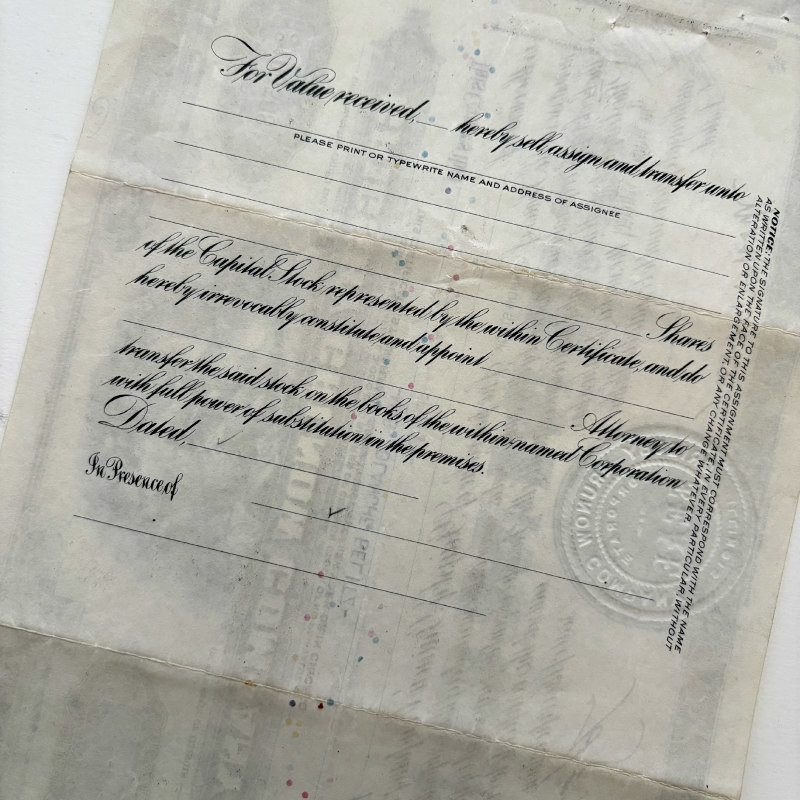 For Value received, hereby sell, assign and transfer unto
PLEASE PRINT OR TYPEWRITE NAME AND ADDRESS OF ASSIGNEE
Shares
of the Capital Stock represented by the within Certificate, and do
hereby irrevocably constitute and appoint
Attorney to
transfer the said stock on the books of the within-named Corporation
with full power of substitution in the premises.
Dated,
In Presence of
NOTICE: THE SIGNATURE TO THIS ASSIGNMENT MUST CORRESPOND WITH THE NAME
AS WRITTEN UPON THE FACE OF THE CERTIFICATE, IN EVERY PARTICULAR, WITHOUT
ALTERATION OR ENLARGEMENT OR ANY CHANGE WHATEVER.